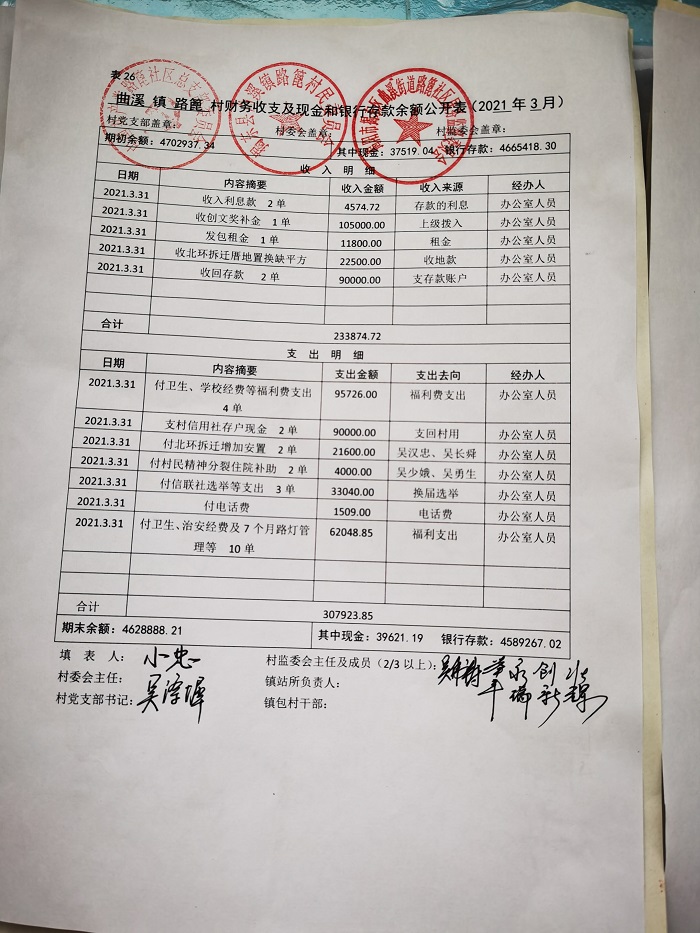 表 26
曲溪 镇 路篦 村财务收支及现金和银行存款余额公开表（2021 年 3 月）
村党支部盖章： 村委会盖章： 村监委会盖章：
期初余额：4702937.34 其中现金：37519.04 银行存款：4665418.30
收 入 明 细
日期 内容摘要 收入金额 收入来源 经办人
2021.3.31 收入利息款 2 单 4574.72 存款的利息 办公室人员
2021.3.31 收创文奖补金 1 单 105000.00 上级拨入 办公室人员
2021.3.31 发包租金 1 单 11800.00 租金 办公室人员
2021.3.31 收北环拆迁厝地置换缺平方 22500.00 收地款 办公室人员
2021.3.31 收回存款 2 单 90000.00 支存款账户 办公室人员
合计 233874.72
支 出 明 细
日期 内容摘要 支出金额 支出去向 经办人
2021.3.31 付卫生、学校经费等福利费支出 95726.00 福利费支出 办公室人员
4 单
2021.3.31 支村信用社存户现金 2 单 90000.00 支回村用 办公室人员
2021.3.31 付北环拆迁增加安置 2 单 21600.00 吴汉忠、吴长舜 办公室人员
2021.3.31 付村民精神分裂住院补助 2 单 4000.00 吴少娥、吴勇生 办公室人员
2021.3.31 付信联社选举等支出 3 单 33040.00 换届选举 办公室人员
2021.3.31 付电话费 1509.00 电话费 办公室人员
2021.3.31 付卫生、治安经费及 7 个月路灯管 62048.85 福利支出 办公室人员
理等 10 单
合计 307923.85
期末余额：4628888.21 其中现金：39621.19 银行存款：4589267.02
填 表 人： 小忠 村监委会主任及成员（2/3 以上）：
村委会主任： 镇站所负责人：
村党支部书记： 镇包村干部：